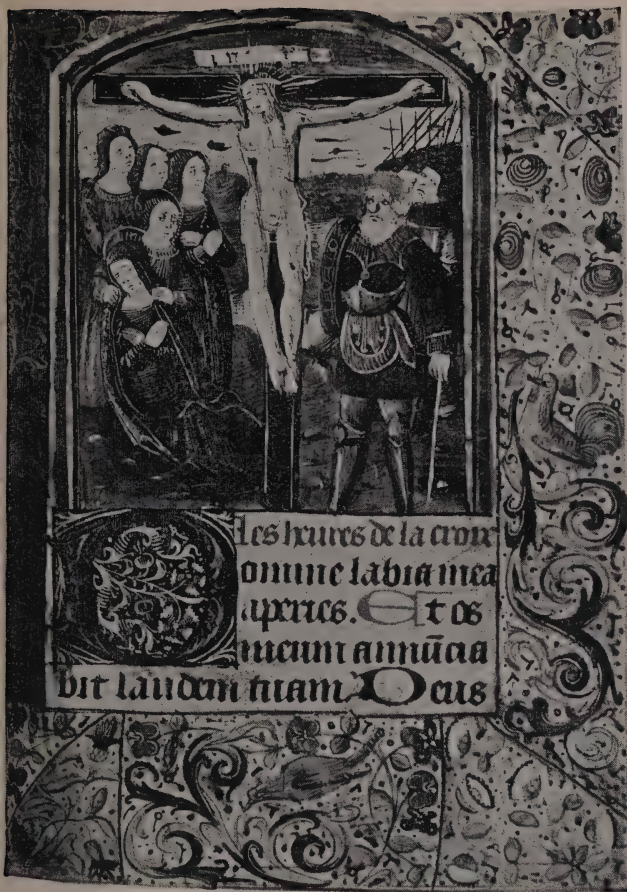 les heures de la croix
Domine labia mea
aperies. Et os
meum annūcia
bit laudem tuam. Deus